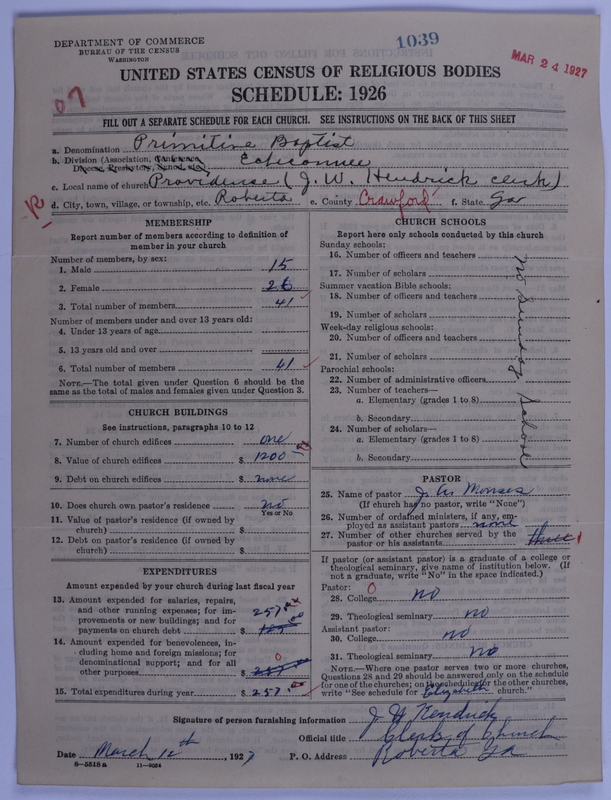 DEPARTMENT OF COMMERCE
BUREAU OF THE CENSUS
WASHINGTON
1039
MAR 24 1927
UNITED STATES CENSUS OF RELIGIOUS BODIES
SCHEDULE: 1926
07
FILL OUT A SEPARATE SCHEDULE FOR EACH CHURCH. SEE INSTRUCTIONS ON THE BACK OF THIS SHEET
a. Denomination Primitive Baptist
b. Division (Association, Conference, Diocese, Presbytery, Synod, etc.) Echeconnee
c. Local name of church Providense (J. W. Hendrick clerk)
d. City, town, village, or township, etc. Roberta e. County Crawford f. State Ga
MEMBERSHIP
Report number of members according to definition of member in your church
Number of members, by sex:
1. Male 15
2. Female 26
3. Total number of members 41
Number of members under and over 13 years old:
4. Under 13 years of age
5. 13 years old and over
6. Total number of members 41
NOTE.—The total given under Question 6 should be the same as the total of males and females given under Question 3.
CHURCH BUILDINGS
See instructions, paragraphs 10 to 12
7. Number of church edifices one
8. Value of church edifices $ 1200
9. Debt on church edifices $ none
10. Does church own pastor's residence no
Yes or No
11. Value of pastor's residence (if owned by church) $
12. Debt on pastor's residence (if owned by church) $
EXPENDITURES
Amount expended by your church during last fiscal year
13. Amount expended for salaries, repairs, and other running expenses; for improvements or new buildings; and for payments on church debt $ 257
14. Amount expended for benevolences, including home and foreign missions; for denominational support; and for all other purposes $ 0
15. Total expenditures during year $ 257.00
CHURCH SCHOOLS
Report here only schools conducted by this church
Sunday schools:
16. Number of officers and teachers
17. Number of scholars
Summer vacation Bible schools:
18. Number of officers and teachers
19. Number of scholars
Week-day religious schools:
20. Number of officers and teachers
21. Number of scholars
Parochial schools:
22. Number of administrative officers
23. Number of teachers—
a. Elementary (grades 1 to 8)
b. Secondary
24. Number of scholars—
a. Elementary (grades 1 to 8)
b. Secondary
No Sunday School
PASTOR
25. Name of pastor
(If church has no pastor, write "None")
26. Number of ordained ministers, if any, employed as assistant pastors none
27. Number of other churches served by the pastor or his assistants three
If pastor (or assistant pastor) is a graduate of a college or theological seminary, give name of institution below. (If not a graduate, write "No" in the space indicated.)
Pastor: 0
28. College no
29. Theological seminary no
Assistant pastor:
30. College no
31. Theological seminary no
NOTE.—Where one pastor serves two or more churches, Questions 28 and 29 should be answered only on the schedule for one of the churches; on the schedules for the other churches, write "See schedule for Elizabeth church."
Signature of person furnishing information J W Hendrick
Official title Clerk of Church
Date March 12th, 1927 P. O. Address Roberta Ga
8—5518 a 11—9034